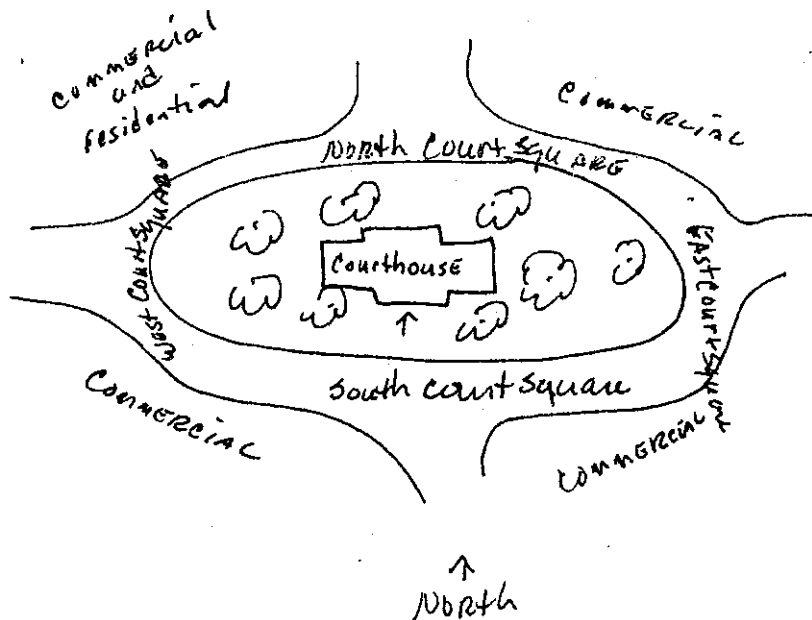 Commercial
and
residential
COMMERCIAL
NORTH COURT SQUARE
WEST COURT SQUARE
Courthouse
EAST COURT SQUARE
South Court Square
COMMERCIAL
COMMERCIAL
NORTH